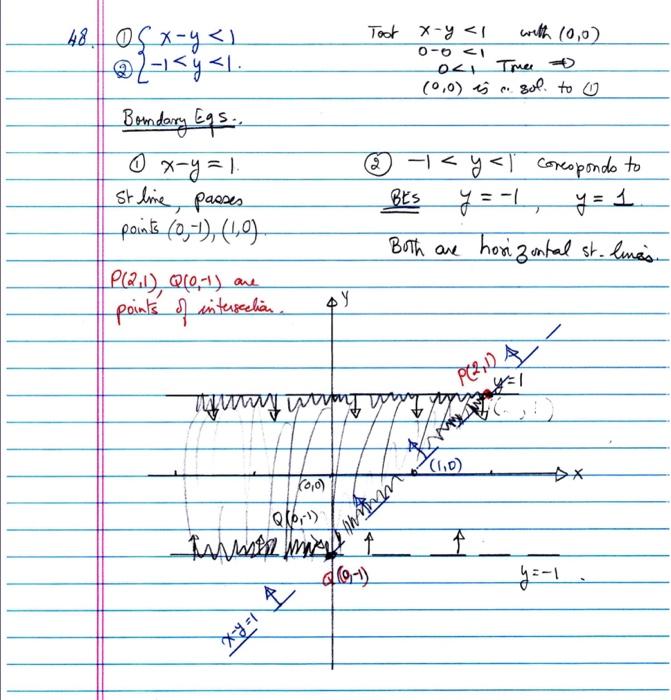 48. ① { x-y<1
② { -1<y<1.
Test x-y<1 with (0,0)
0-0<1
0<1 True ⇒
(0,0) is a sol. to ①
Boundary Eqs.
① x-y=1.
st line, passes
points (0,-1), (1,0)
② -1<y<1 corresponds to
BEs y=-1, y=1
Both are horizontal st. lines.
P(2,1), Q(0,-1) are
points of intersection.
Y
P(2,1)
y=1
(1,0)
X
(0,0)
Q(0,-1)
Q(0,-1)
y=-1.
x-y=1